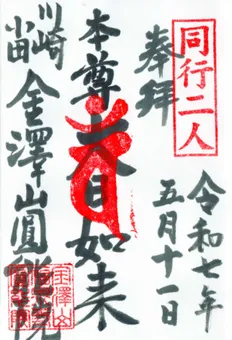 同行二人
奉拝
令和七年
五月十一日
本尊大日如来
川崎
小田
金澤山圓能院